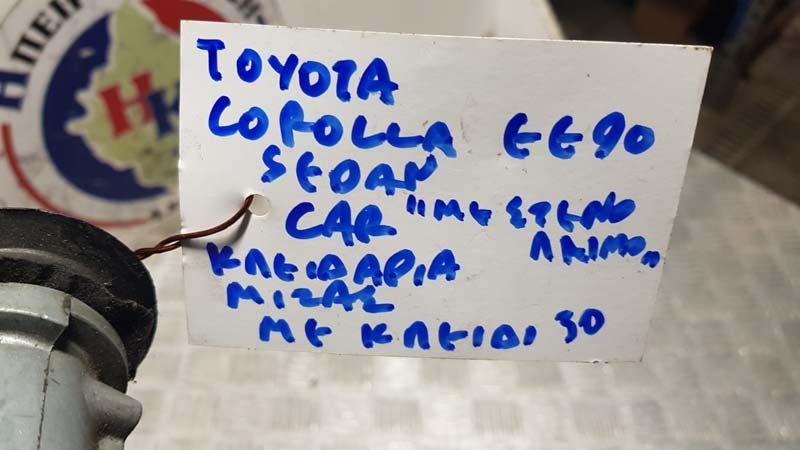 ΗΠΕΙ
ΗΚ
TOYOTA
COROLLA EE90
SEDAN
CAR "ΜΕ ΣΤΕΝΟ
ΛΑΙΜΟ"
ΚΛΕΙΔΑΡΙΑ
ΜΙΖΑΣ
ΜΕ ΚΛΕΙΔΙ 30